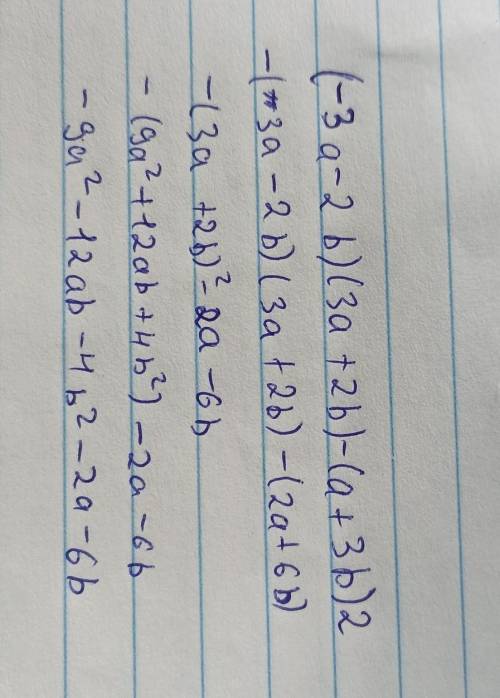 (-3a-2b)(3a+2b)-(a+3b)2
-(3a-2b)(3a+2b)-(2a+6b)
-(3a+2b)²-2a-6b
-(9a²+12ab+4b²)-2a-6b
-9a²-12ab-4b²-2a-6b